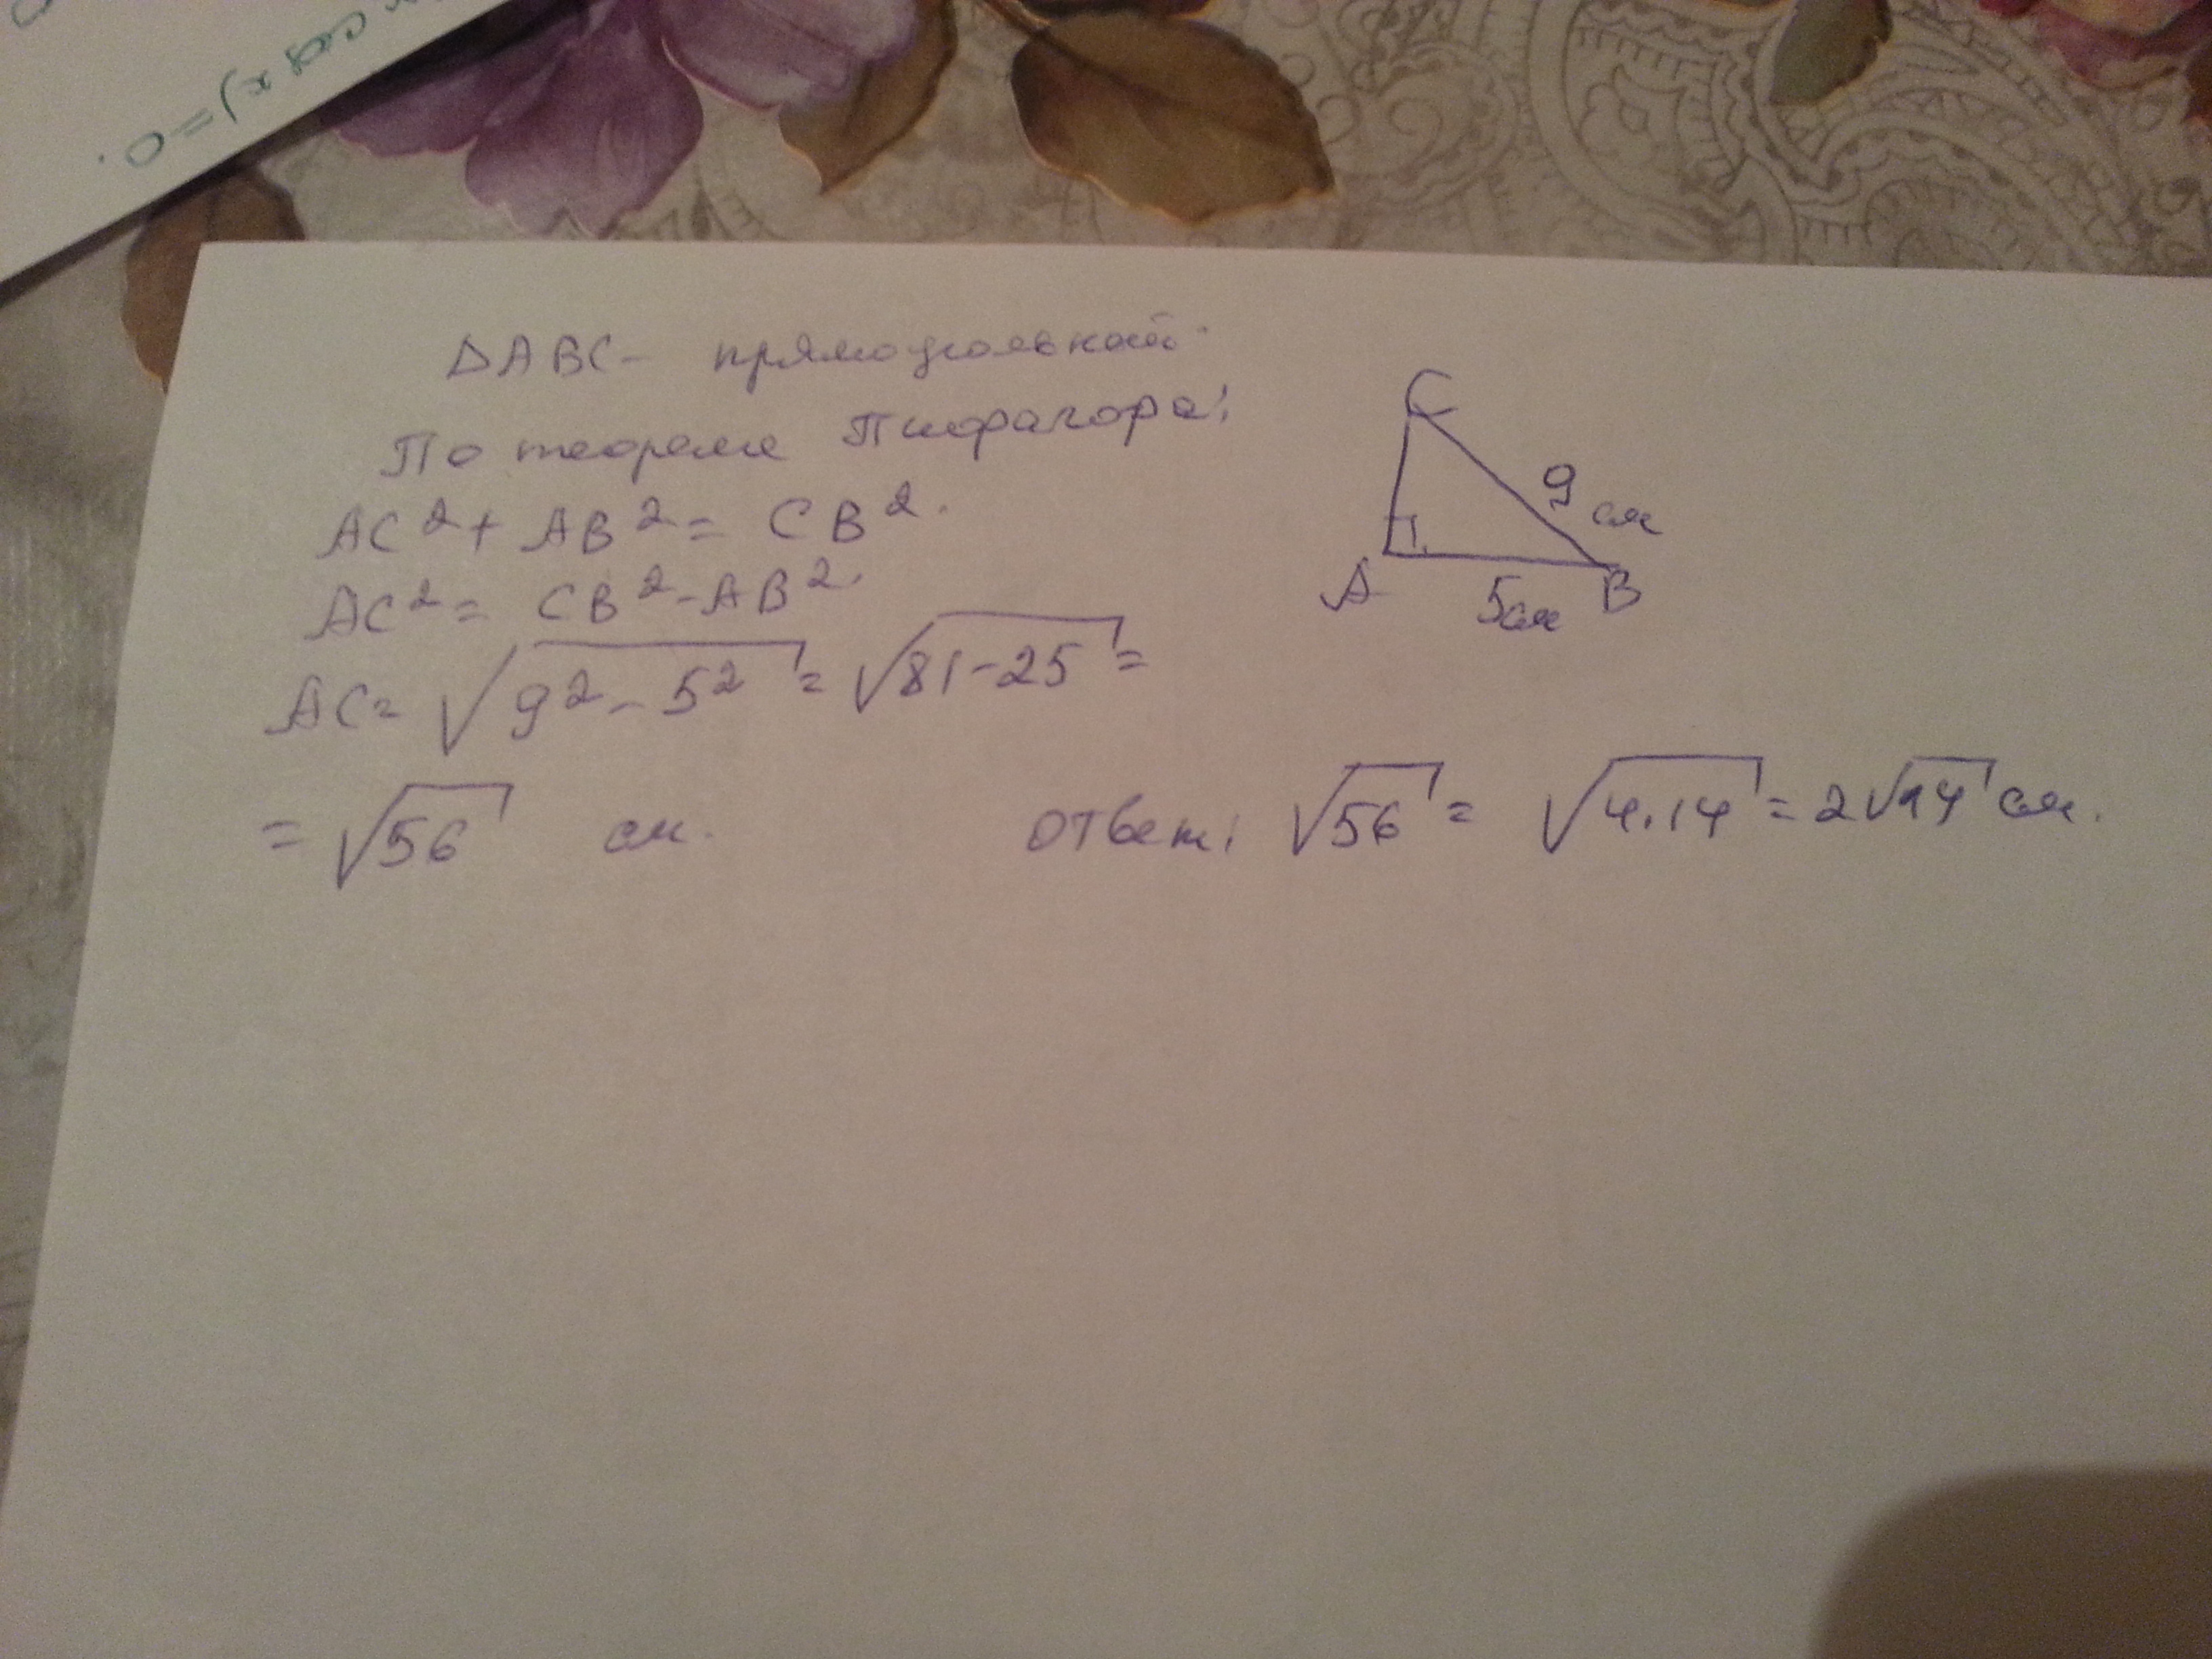 cos x)=0.
ΔABC - прямоугольный.
По теореме Пифагора:
AC² + AB² = CB².
AC² = CB² - AB².
AC = √9² - 5² = √81-25 =
= √56 см.
C
9 см
A
5см
B
ответ: √56 = √4·14 = 2√14 см.